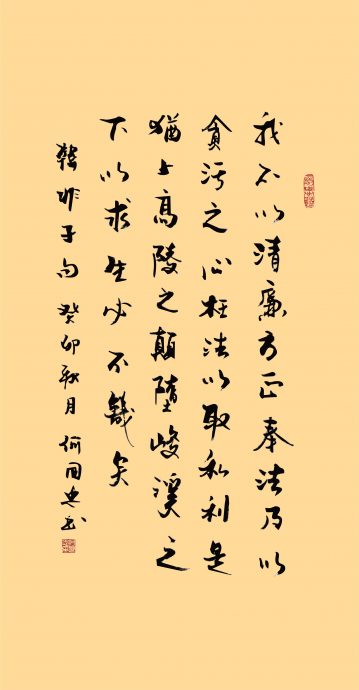 我不以清廉方正奉法乃以
貪污之心枉法以取私利是
猶上高陵之顛墮峻溪之
下以求生必不幾矣
韓非子句 癸卯秋月 何国忠书